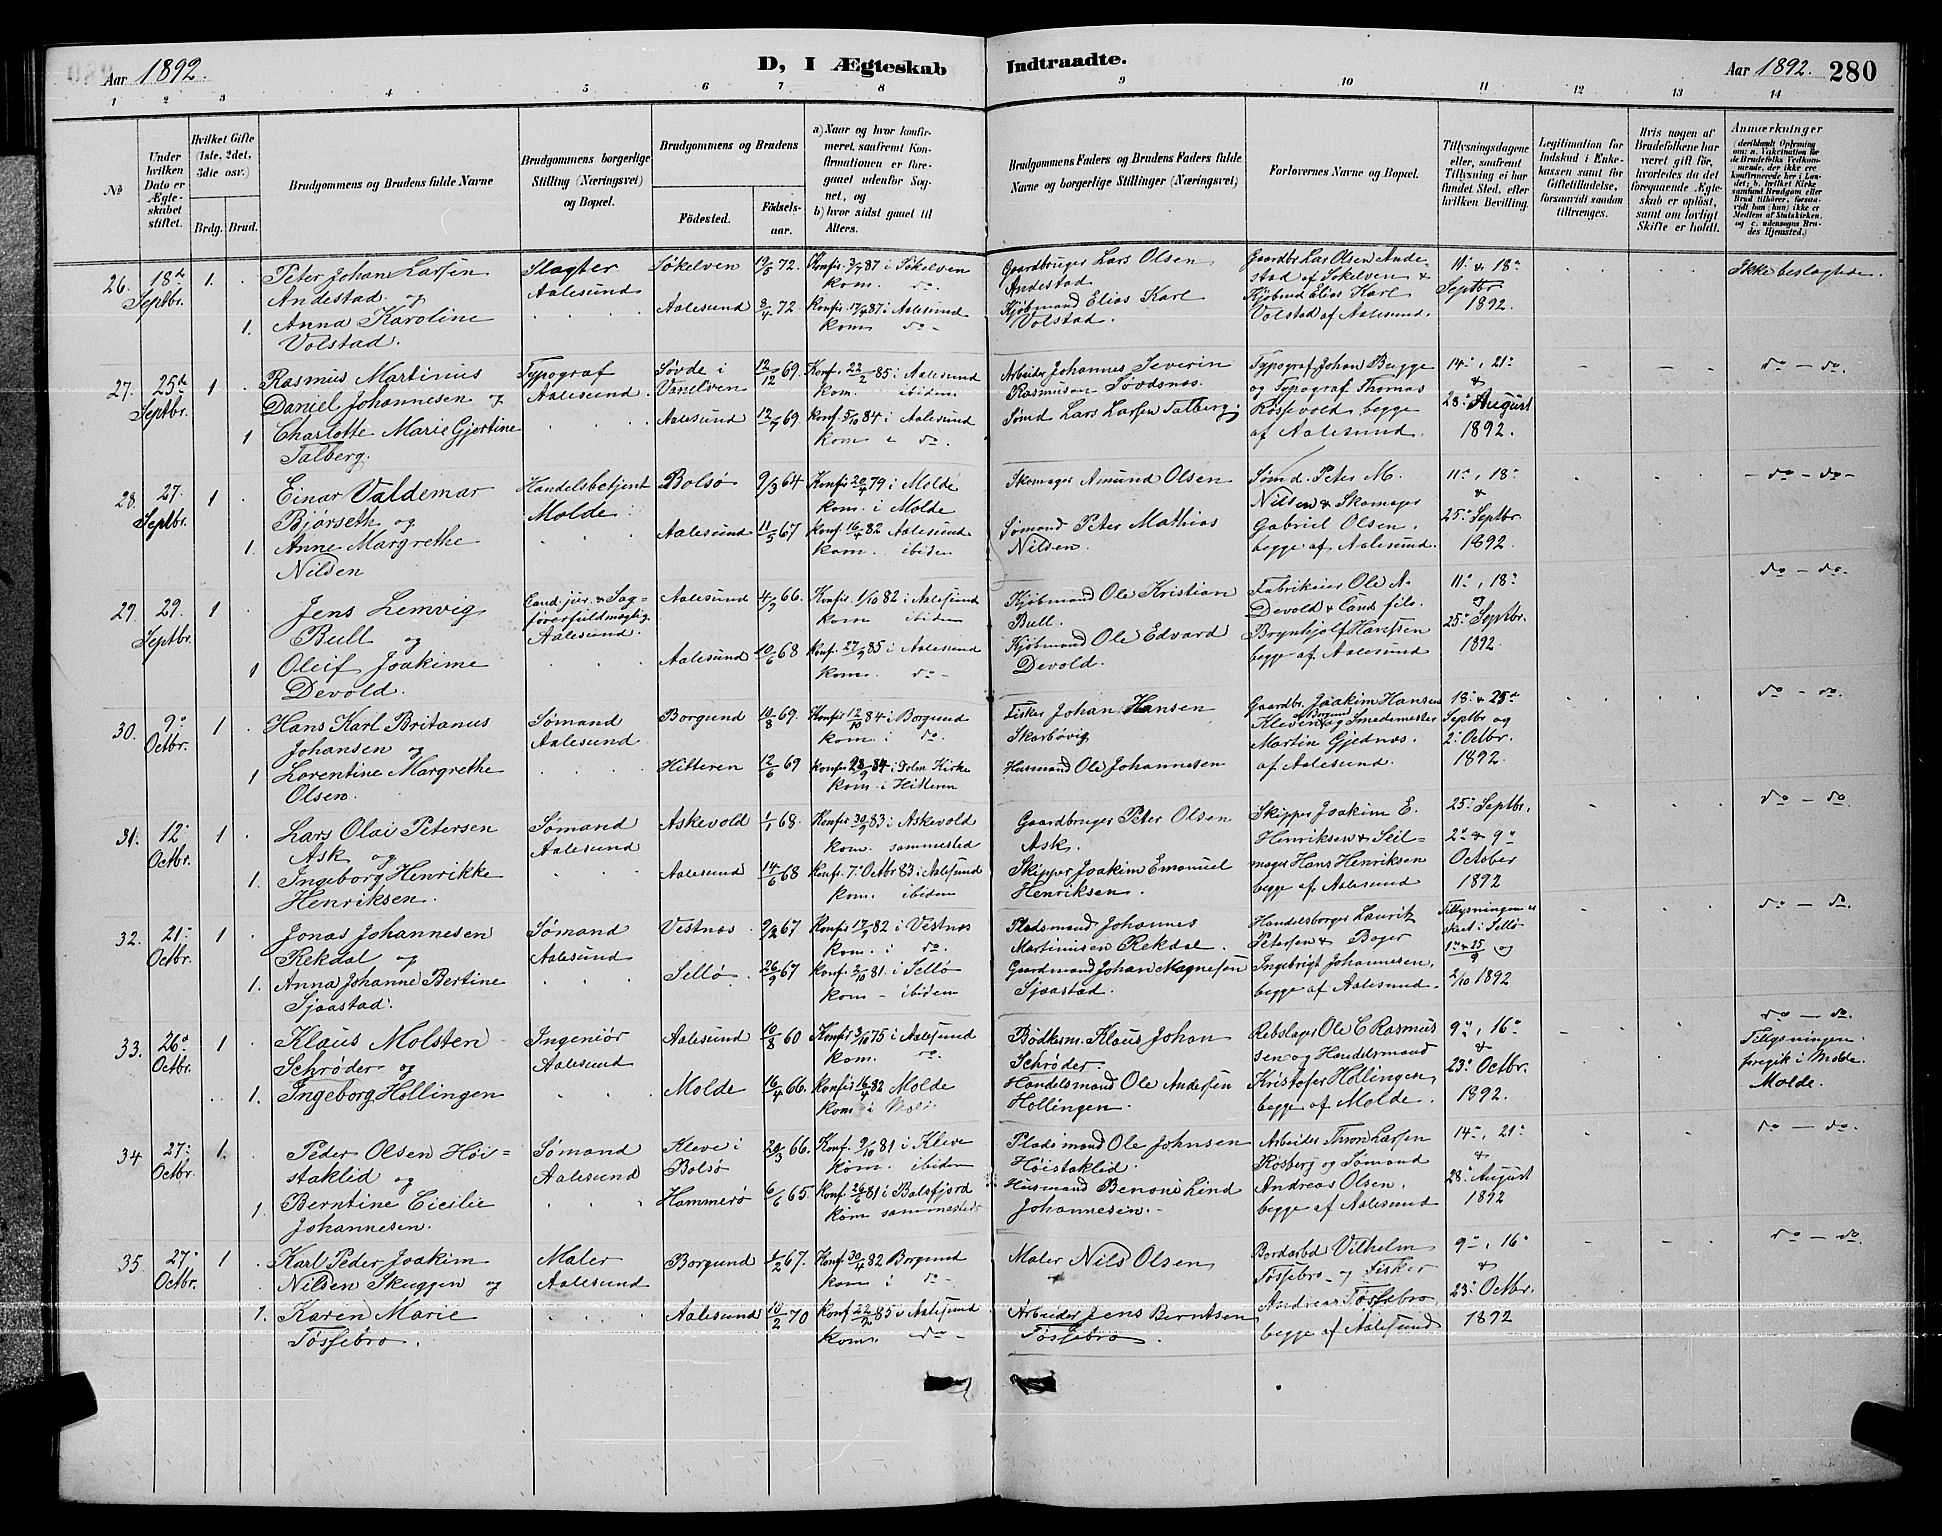 Aar 1892.
D, I Ægteskab Indtraadte.
Aar 1892. 280
1 2 3 4 5 6 7 8 9 10 11 12 13 14
No
Under hvilken Dato er Ægteskabet stiftet.
Hvilket Gifte (1ste, 2det, 3die osv.)
Brdg. Brud.
Brudgommens og Brudens fulde Navne
Brudgommens borgerlige Stilling (Næringsvei) og Bopæl.
Brudgommens og Brudens
Fødested. Fødselsaar.
a) Naar og hvor konfirmeret, saafremt Konfirmationen er foregaaet udenfor Sognet, og
b) hvor sidst gaaet til Alters.
Brudgommens Faders og Brudens Faders fulde Navne og borgerlige Stillinger (Næringsvei)
Forlovernes Navne og Bopæl.
Tillysningsdagene eller, saafremt Tillysning ei har fundet Sted, efter hvilken Bevilling.
Legitimation for Indskud i Enkekassen samt for Giftetilladelse, forsaavidt saadan tiltrænges.
Hvis nogen af Brudefolkene har været gift før, hvorledes da det foregaaende Ægteskab er opløst, samt om lovligt Skifte er holdt.
Anmærkninger (deriblandt Oplysning om: a. Vakcination for de Brudefolks Vedkommende, der ikke ere konfirmerede her i Landet; b. hvilket Kirkesamfund Brudgom eller Brud tilhører, forsaavidt han (hun) ikke er Medlem af Statskirken, og c. udensogns Brudes Hjemsted.)
26. 18de Septbr. 1. Peter Johan Larsen Andestad og
Slagter Aalesund
Søkelven 19/5 72. Konfir. 3/7 87 i Søkelven kom. do.
Gaardbruger Lars Olsen Andestad
Gaardbr. Lars Olsen Andestad af Søkelven & Kjøbmd Elias Karl Volstad af Aalesund.
11' & 18' Septbr 1892.
Ikke beslægtede.
1. Anna Karoline Volstad.
Aalesund 8/4 72. Konfir. 17/4 87 i Aalesund kom do -
Kjøbmand Elias Karl Volstad.
27. 25de Septbr. 1 Rasmus Martinus Daniel Johannesen og
Typograf Aalesund.
Søvde i Vanelven 12/12 69. Konf. 22/2 85 i Aalesund kom. ibidem
Arbeider Johannes Severin Rasmusen Søvdsnæs.
Typograf Johan Bugge og Typograf Thomas Røsevold begge af Aalesund.
14', 21' & 28' August 1892.
do - do.
1 Charlotte Marie Gjertine Talberg.
Aalesund 12/7 69. Konf. 5/10 84 i Aalesund kom i do.
Sømd Lars Larsen Talberg.
28. 27. Septbr. 1 Einar Valdemar Bjørseth og
Handelsbetjent Molde
Bolsø 9/3 64 Konfir 20/4 79 i Molde kom. i Molde
Skomager Amund Olsen
Sømd. Peter M. Nilsen & Skomager Gabriel Olsen. begge af Aalesund.
11', 18' & 25' Septbr. 1892.
- do - do -
1. Anne Margrethe Nilsen
Aalesund 11/5 67 Konf. 16/4 82 Aalesund kom. ibidem
Sømand Peter Mathias Nilsen.
29. 29. Septbr. 1 Jens Lemvig Bull og
Cand. jur. & Sagførerfuldmægtig Aalesund.
Aalesund 4/9 66. Konfir. 1/10 82 i Aalesund kom ibidem
Kjøbmand Ole Kristian Bull.
Fabrikeier Ole A. Devold & Cand filo. Brynhjolf Hanssen begge af Aalesund
11', 18' og 25' Septbr. 1892.
do - do.
1 Oleif Joakime Devold.
Aalesund 10/6 68 Konf. 27/9 85 i Aalesund kom. do -
Kjøbmand Ole Edvard Devold.
30. 9' Octbr. 1 Hans Karl Britanus Johansen og
Sømand Aalesund
Borgund 10/8 69. Konfir 12/10 84 i Borgund kom. i do.
Fisker Johan Hansen Skarbøvig
Gaardbr. Joakim Hansen Kleven af Borgund og Smedemester Martin Gjednæs. af Aalesund.
18' & 25de Septbr og 2' Octbr. 1892
do - do.
1 Lorentine Margrethe Olsen.
Hitteren 12/6 69 Konfir 28/9 84 i Dolm Kirke kom. i Hitteren
Husmand Ole Johannesen
31. 12' Octbr. 1 Lars Olai Petersen Ask og
Sømand Aalesund
Askevold 1/1 68. Konfir. 30/9 83 i Askevold kom. sammested
Gaardbruger Peter Olsen Ask.
Skipper Joakim E. Henriksen & Seilmager Hans Henriksen begge af Aalesund
25' Septbr. 2' & 9' October 1892
do - do.
1. Ingeborg Henrikke Henriksen.
Aalesund 14/6 68 Konf. 7' Octbr 83 i Aalesund kom. ibidem
Skipper Joakim Emanuel Henriksen.
32. 21' Octbr. 1 Jonas Johannesen Rekdal og
Sømand Aalesund
Vestnæs 9/2 67 Konfir 17/9 82 i Vestnæs kom. i do.
Pladsmand Johannes Martinusen Rekdal.
Handelsborger Laurits Petersen & Bager Ingebrigt Johannesen, begge af Aalesund.
Tillysningen er skeet i Sellø 1' & 25/9 og 2/10 1892
do - do.
1. Anna Johanne Bertine Sjaastad.
Sellø. 26/9 67 Konf. 2/10 81 i Sellø kom - ibidem
Gaardmand Johan Magnesen Sjaastad.
33. 26' Octbr. 1 Klaus Molsten Schrøder og
Ingeniør Aalesund
Aalesund 10/8 60 Konfir 3/10 75 i Aalesund kom. do.
Bødkerm. Klaus Johan Schrøder.
Rebslager Ole C Rasmussen og Handelsmand Kristofer Hollingen, begge af Molde.
9', 16' & 23' Octbr. 1892.
do - do.
Tillysningen foregik i Molde.
Molde.
1. Ingeborg Hollingen
Molde 16/4 66. Konfir 16/4 82 Molde kom i Molde.
Handelsmand Ole Andersen Hollingen.
34 27' Octbr. 1. Peder Olsen Høistaklid og
Sømand Aalesund
Kleve i Bolsø 20/3 66. Konf. 9/10 81 i Kleve kom. ibidem
Pladsmand Ole Johnsen Høistaklid.
Arbeider Thron Larsen Røsberg og Sømand Andreas Olsen. begge af Aalesund
14', 21' & 28' August 1892
do - do.
1. Berntine Cicilie Johannesen.
Hammerø 6/6 65. Konf. 26/6 81 i Balsfjord kom sammesteds
Husmand Benoni Lind Johannesen.
35. 27' Octbr. 1 Karl Peder Joakim Nilsen Skuggen og
Maler Aalesund
Borgund 1/2 67. Konf. 30/4 82 Borgund kom i do -
Maler Nils Olsen
Bordarbd Vilhelm Føssebro og Fisker Andreas Føssebro begge af Aalesund
9', 16' & 23' Octbr. 1892
do - do.
1. Karen Marie Føssebro.
Aalesund 10/2 70 Konf. 22/2 85 i Aalesund kom. do -
Arbeider Jens Berntsen Føssebro